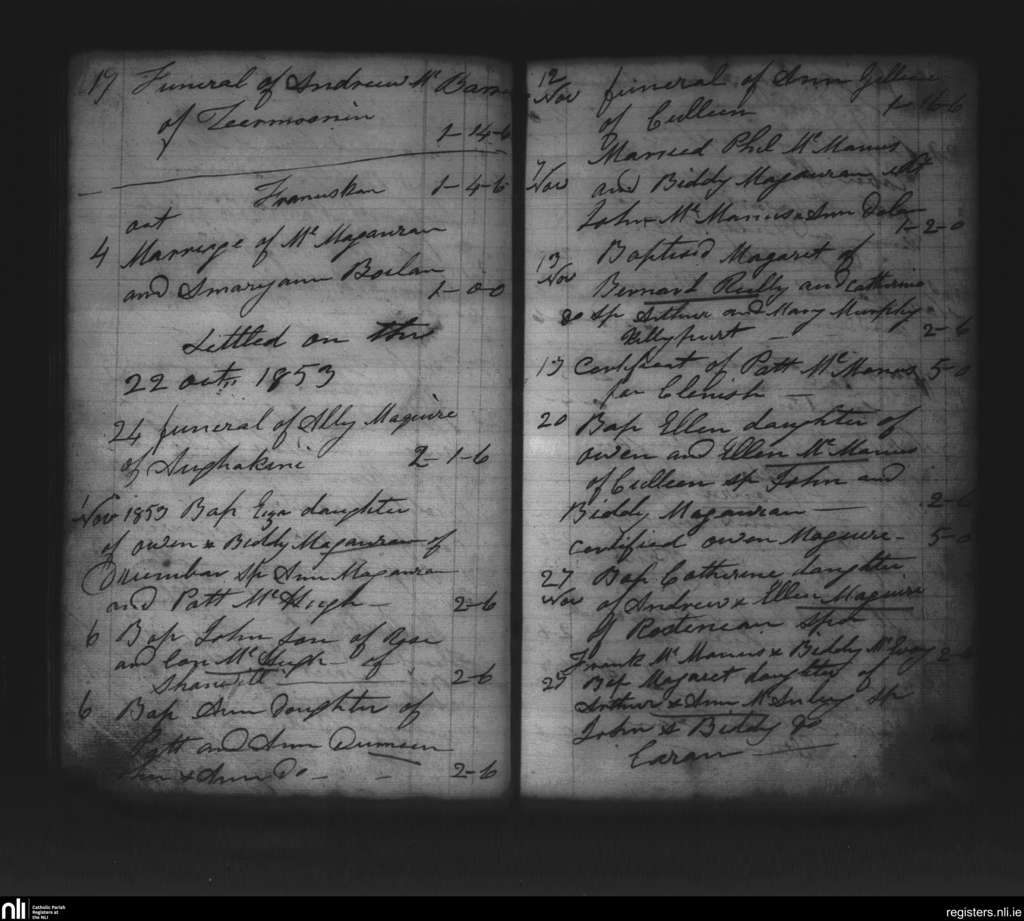 19 Funeral of Andrew Mc
of
1-14-6
Franciskan 1-4-6
oct
4 Marriage of Mc Magauran
and Smaryann Boilan
1-0-0
Settled on the
22 oct 1853
24 funeral of Ally Maguire
of Aughakini 2-1-6
1 Nov 1853 Bap Eza daughter
of owen & Biddy Magauran of
Drumbar Sp Ann Magauran
and Patt McHugh - 2-6
6 Bap John son of Rose
and Con McHugh of
2-6
6 Bap Ann daughter of
Patt and Ann
& Ann Do - - 2-6
12 Nov funeral of Ann
of Culleen 1-16-6
7 Nov Married Phil McManus
and Biddy Magauran
John McManus & Ann
1-2-0
13 Nov Baptised Magaret of
Bernard Reilly and Catherine
Sp Arthur and Mary Murphy
2-6
13 Certificat of Patt McManus 5-0
for Clenish
20 Bap Ellen daughter of
owen and Ellen McManus
of Culleen sp John and
Biddy Magauran - 2-6
certified owen Maguire - 5-0
27 Nov Bap Catherine daughter
of Andrew & Ellen Maguire
of
Frank McManus & Biddy 2-6
27 Bap Magaret daughter of
Arthur & Ann sp
John & Biddy Do
nli
Catholic Parish
Registers at
the NLI
registers.nli.ie